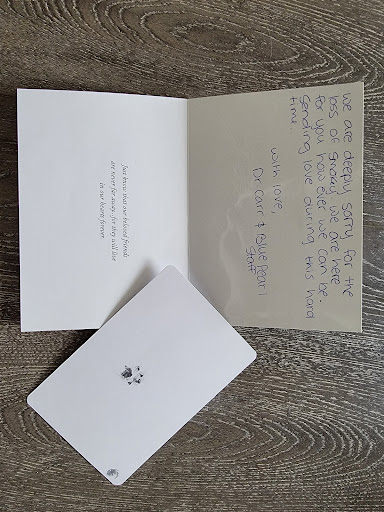 Just know that our beloved friends
are never far away, for they will live
in our hearts forever.
we are deeply sorry for the
loss of Smokey. we are here
for you how ever we can be.
Sending love during this hard
time.
with love,
Dr. Carr & Bluepearl
Staff